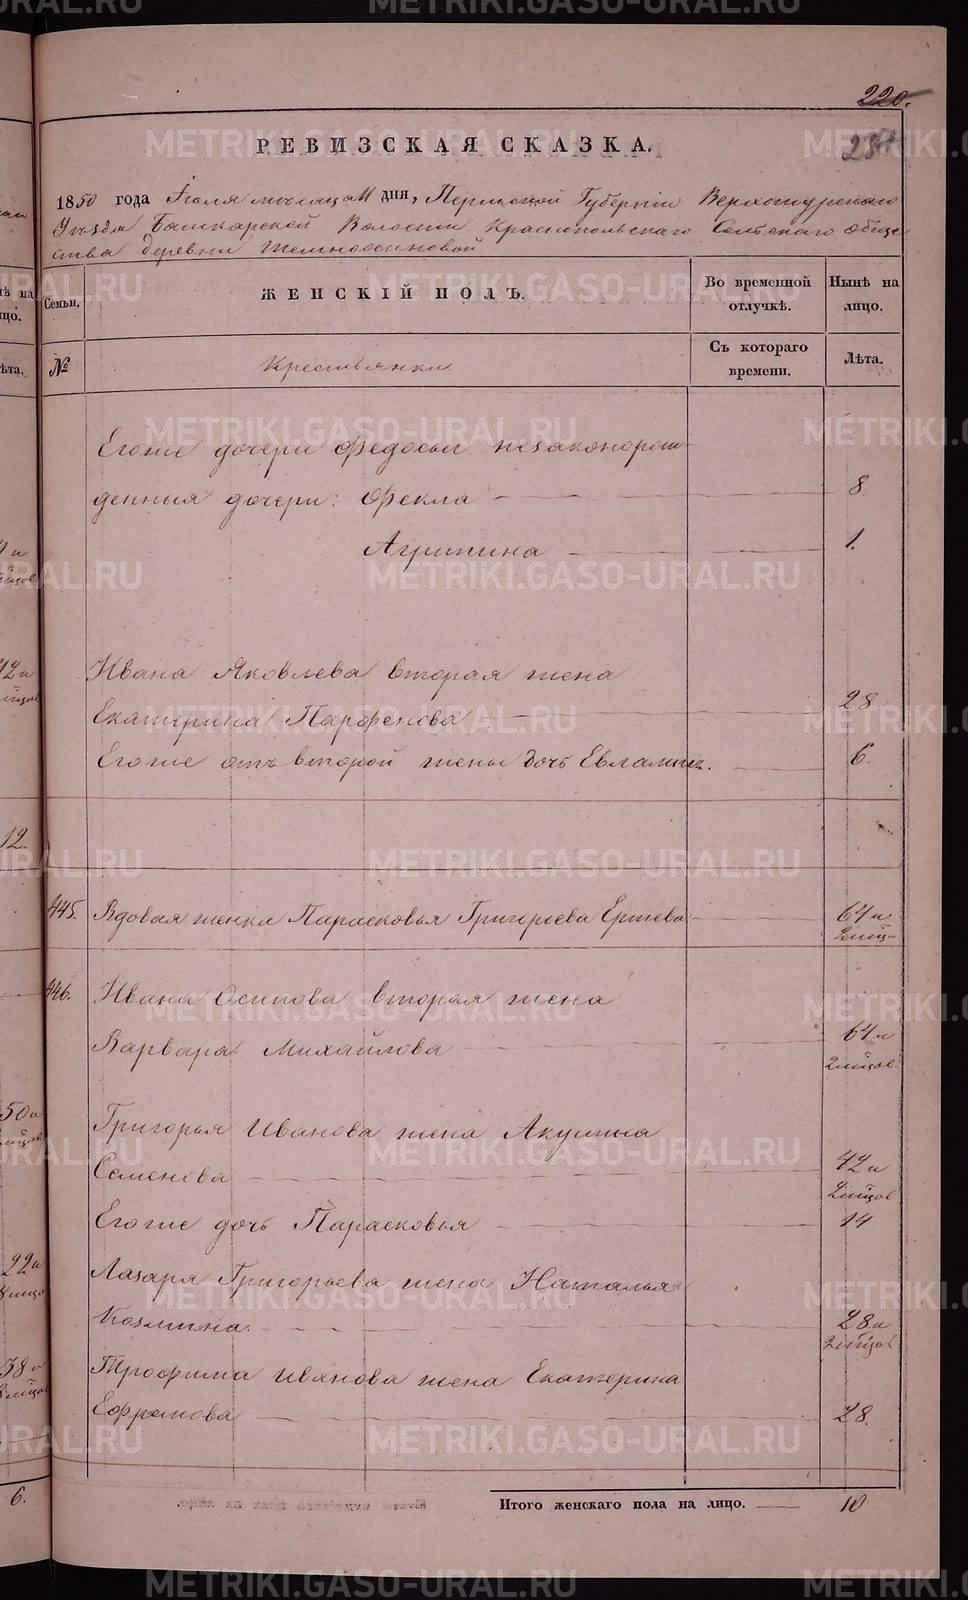 220.
РЕВИЗСКАЯ СКАЗКА.
1850 года Іюля мѣсяца 11 дня, Пермской Губерніи Верхотурскаго
Уѣзда Башкарской Волости Краснопольскаго Сельскаго обще
ства деревни
Семьи.
ЖЕНСКІЙ ПОЛЪ.
Во временной отлучкѣ.
Нынѣ на лицо.
№
Крестьянки
Съ котораго времени.
Лѣта.
Егоже дочери Федосьи незаконорож
денныя дочери: Фекла 8
Агрипина 1.
Ивана Яковлева вторая жена
Екатерина Парфенова 28
Егоже отъ второй жены дочь Евлампія. 6.
445. Вдовая женка Парасковья Григорьева Ершева 64 и
2 мѣсц
446. Ивана Осипова вторая жена
Варвара Михайлова 64 и
2 мѣсцов
Григорья Иванова жена Акулина
Семенова 42 и
2 мѣсцов
Егоже дочь Парасковья 14
Лазаря Григорьева жена Наталья
Козмина. 28 и
2 мѣсцов
Трофима Иванова жена Екатерина
Ефремова 28.
Итого женскаго пола на лицо. 10
METRIKI.GASO-URAL.RU